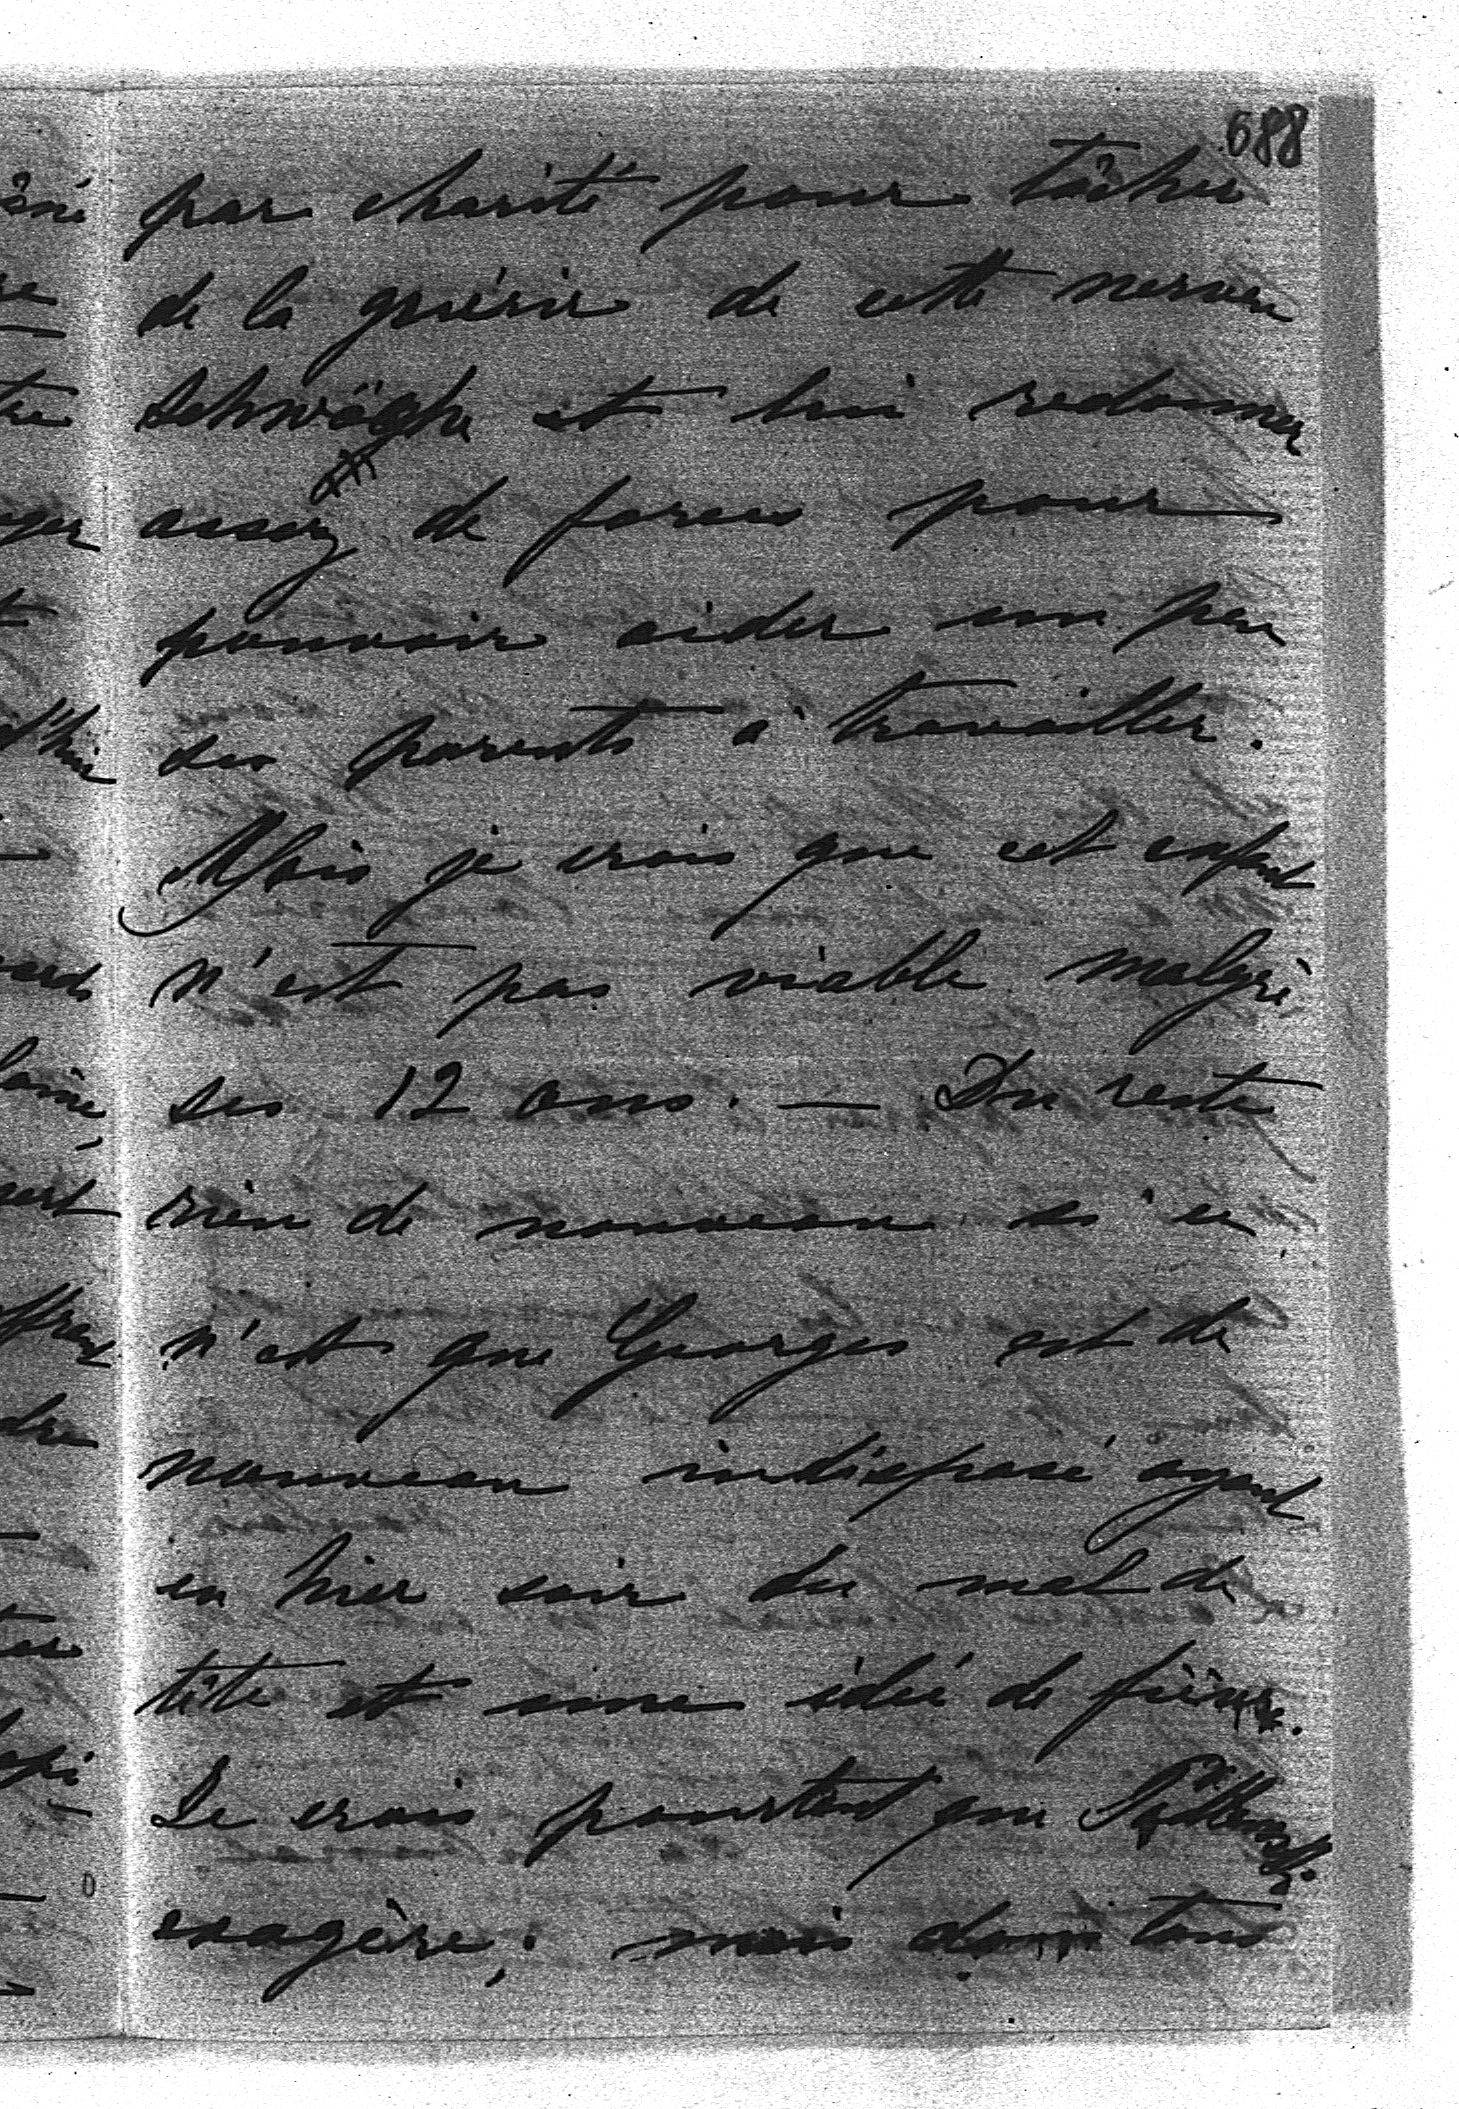 688
par charité pour tâcher
de la guérir de cette nerven
Schwäche et lui redonner
assez de forces pour
pouvoir aider un peu
ses parents à travailler.
Mais je crois que cet enfant
n'est pas viable malgré
ses 12 ans. — Du reste
rien de nouveau si ce
n'est que Georges est de
nouveau indisposé ayant
eu hier soir du mal de
tête et une idée de fièvre.
Je crois pourtant que
exagère; mais dans tous